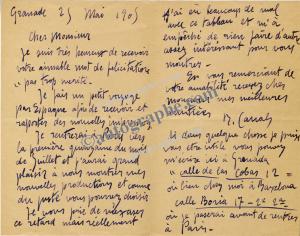 Grenade 25 Mai 1905
Cher Monsieur
Je suis très heureux de recevoir
votre aimable mot de félicitations
pas trop mérité.
Je fais un petit voyage
par Espagne afin de recevoir et
rapporter des nouvelles
Je rentrerai vers
la première quinzaine du mois
de Juillet et j'aurai grand
plaisir à vous montrer mes
nouvelles productions et comme
du reste vous pouvez choisir
Je vous prie de m'excuser
ce retard mais réellement
j'ai eu beaucoup de mal
avec ce tableau et m'a
empêché de rien faire d'autre
assez intéressant pour vous
montrer.
En vous remerciant de
votre amabilité recevez cher
Monsieur mes meilleures
M. Carals
Si dans quelque chose je puis
vous être utile vous pouvez
m'écrire ici à Grenada
calle de las Cobas 12
où bien chez moi à Barcelona
calle Boria 17 - 2º 2ª
où je passerai avant de rentrer
à Paris.